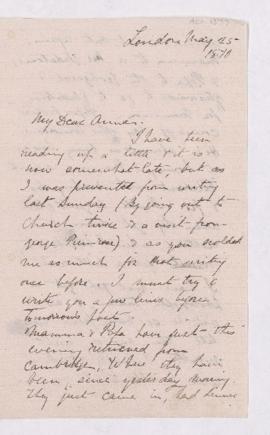 London May 25
1870
My Dear Annie.
I have been
reading up a little & it is
now somewhat late, but as
I was prevented from writing
last Sunday (by going out to
Church twice & a visit from
George Primrose) & as you scolded
me so much for not writing
once before. I must try to
write you a few lines before
tomorrows post.
Mamma & Papa have just this
evening returned from
Cambridge, where they have
been since yesterday morng.
They just came in, had dinner